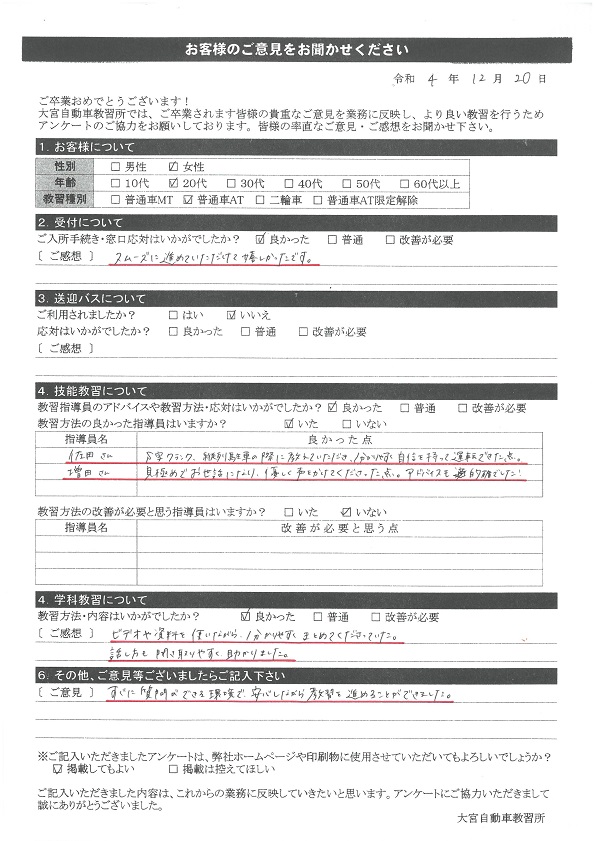 お客様のご意見をお聞かせください
令和 4 年 12 月 20 日
ご卒業おめでとうございます！
大宮自動車教習所では、ご卒業されます皆様の貴重なご意見を業務に反映し、より良い教習を行うため
アンケートのご協力をお願いしております。皆様の率直なご意見・ご感想をお聞かせ下さい。
1. お客様について
性別 □ 男性 ☑ 女性
年齢 □ 10代 ☑ 20代 □ 30代 □ 40代 □ 50代 □ 60代以上
教習種別 □ 普通車MT ☑ 普通車AT □ 二輪車 □ 普通車AT限定解除
2. 受付について
ご入所手続き・窓口応対はいかがでしたか？ ☑ 良かった □ 普通 □ 改善が必要
〔 ご感想 〕 スムーズに進めていただけて嬉しかったです。
3. 送迎バスについて
ご利用されましたか？ □ はい ☑ いいえ
応対はいかがでしたか？ □ 良かった □ 普通 □ 改善が必要
〔 ご感想 〕
4. 技能教習について
教習指導員のアドバイスや教習方法・応対はいかがでしたか？ ☑ 良かった □ 普通 □ 改善が必要
教習方法の良かった指導員はいますか？ ☑ いた □ いない
指導員名 良かった点
佐田さん S字クランク、縦列駐車の際に教えていただき、分かりやすく自信を持って運転できた点。
増田さん 見極めでお世話になり、優しく声をかけてくださった点。アドバイスも適的確でした！
教習方法の改善が必要と思う指導員はいますか？ □ いた ☑ いない
指導員名 改善が必要と思う点
4. 学科教習について
教習方法・内容はいかがでしたか？ ☑ 良かった □ 普通 □ 改善が必要
〔 ご感想 〕 ビデオや資料を使いながら、分かりやすくまとめてくださっていた。
話し方も聞き取りやすく、助かりました。
6. その他、ご意見等ございましたらご記入下さい
〔 ご意見 〕 すぐに質問のできる環境で、安心しながら教習を進めることができました。
※ご記入いただきましたアンケートは、弊社ホームページや印刷物に使用させていただいてもよろしいでしょうか？
☑ 掲載してもよい □ 掲載は控えてほしい
ご記入いただきました内容は、これからの業務に反映していきたいと思います。アンケートにご協力いただきまして
誠にありがとうございました。
大宮自動車教習所